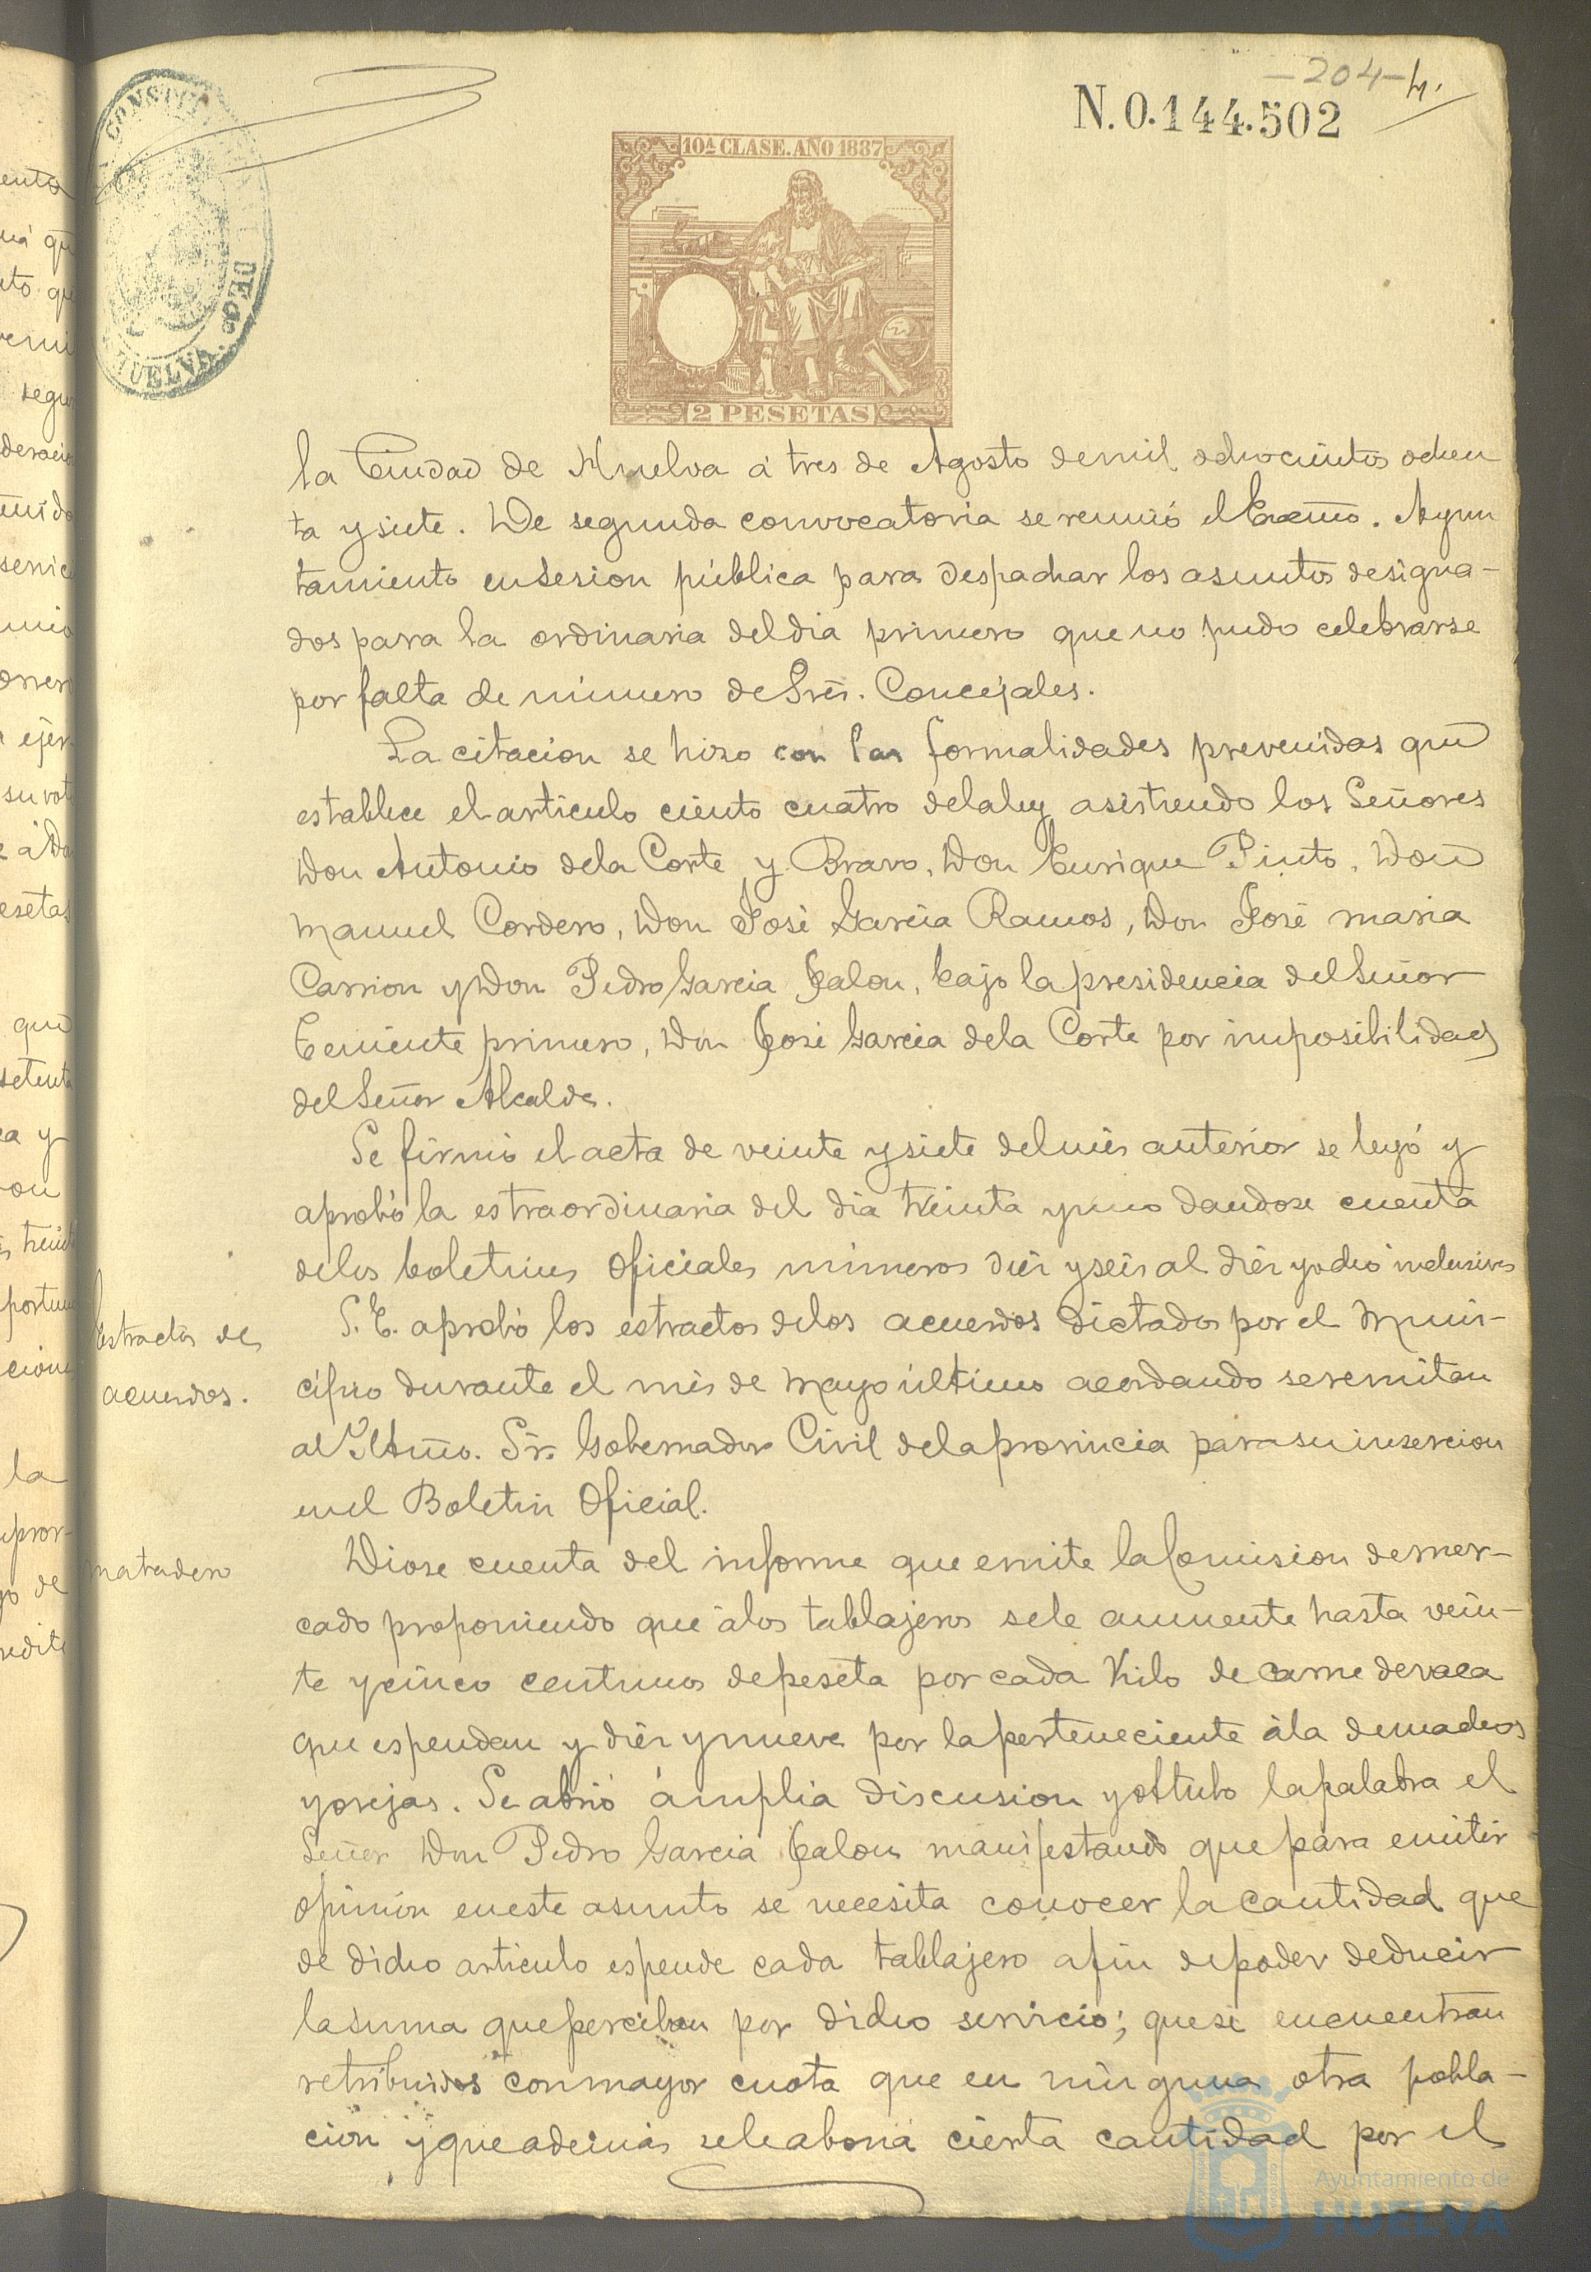 -204- 4.
N.0.144.502
CONSTI
DE
HUELVA
10ª CLASE. AÑO 1887
2 PESETAS
la Ciudad de Huelva á tres de Agosto de mil ochocientos ochen
ta y siete. De segunda convocatoria se reunió el Excmo. Ayun
tamiento en sesion pública para despachar los asuntos designa-
dos para la ordinaria del dia primero que no pudo celebrarse
por falta de número de Sres. Concejales.
La citacion se hizo con las formalidades prevenidas que
establece el articulo ciento cuatro de la ley asistiendo los Señores
Don Antonio de la Corte y Bravo, Don Enrique Pinto, Don
Manuel Cordero, Don José Garcia Ramos, Don José Maria
Carrion y Don Pedro Garcia Jalon, bajo la presidencia del Señor
Teniente primero, Don José Garcia de la Corte por imposibilidad
del Señor Alcalde.
Se firmó el acta de veinte y siete del mes anterior se leyó y
aprobó la estraordinaria del dia treinta y uno dandose cuenta
de los boletines oficiales números diez y seis al diez y ocho inclusives
Estractos de
acuerdos.
S. E. aprobó los estractos de los acuerdos dictados por el Muni-
cipio durante el mes de Mayo último acordando se remitan
al Iltmo. Sr. Gobernador Civil de la provincia para su insercion
en el Boletin Oficial.
matadero
Diose cuenta del informe que emite la Comision de mer-
cado proponiendo que á los tablajeros se le aumente hasta vein-
te y cinco centimos de peseta por cada Kilo de carne de vaca
que espendan y diez y nueve por la perteneciente á la de machos
y orejas. Se abrió ámplia discusion y obtubo la palabra el
Señor Don Pedro Garcia Jalon manifestando que para emitir
opinión en este asunto se necesita conocer la cantidad que
de dicho articulo espende cada tablajero a fin de poder deducir
la suma que perciben por dicho servicio; que se encuentran
retribuidos con mayor cuota que en ninguna otra pobla-
ción y que además se le abona cierta cantidad por el
Ayuntamiento de
HUELVA